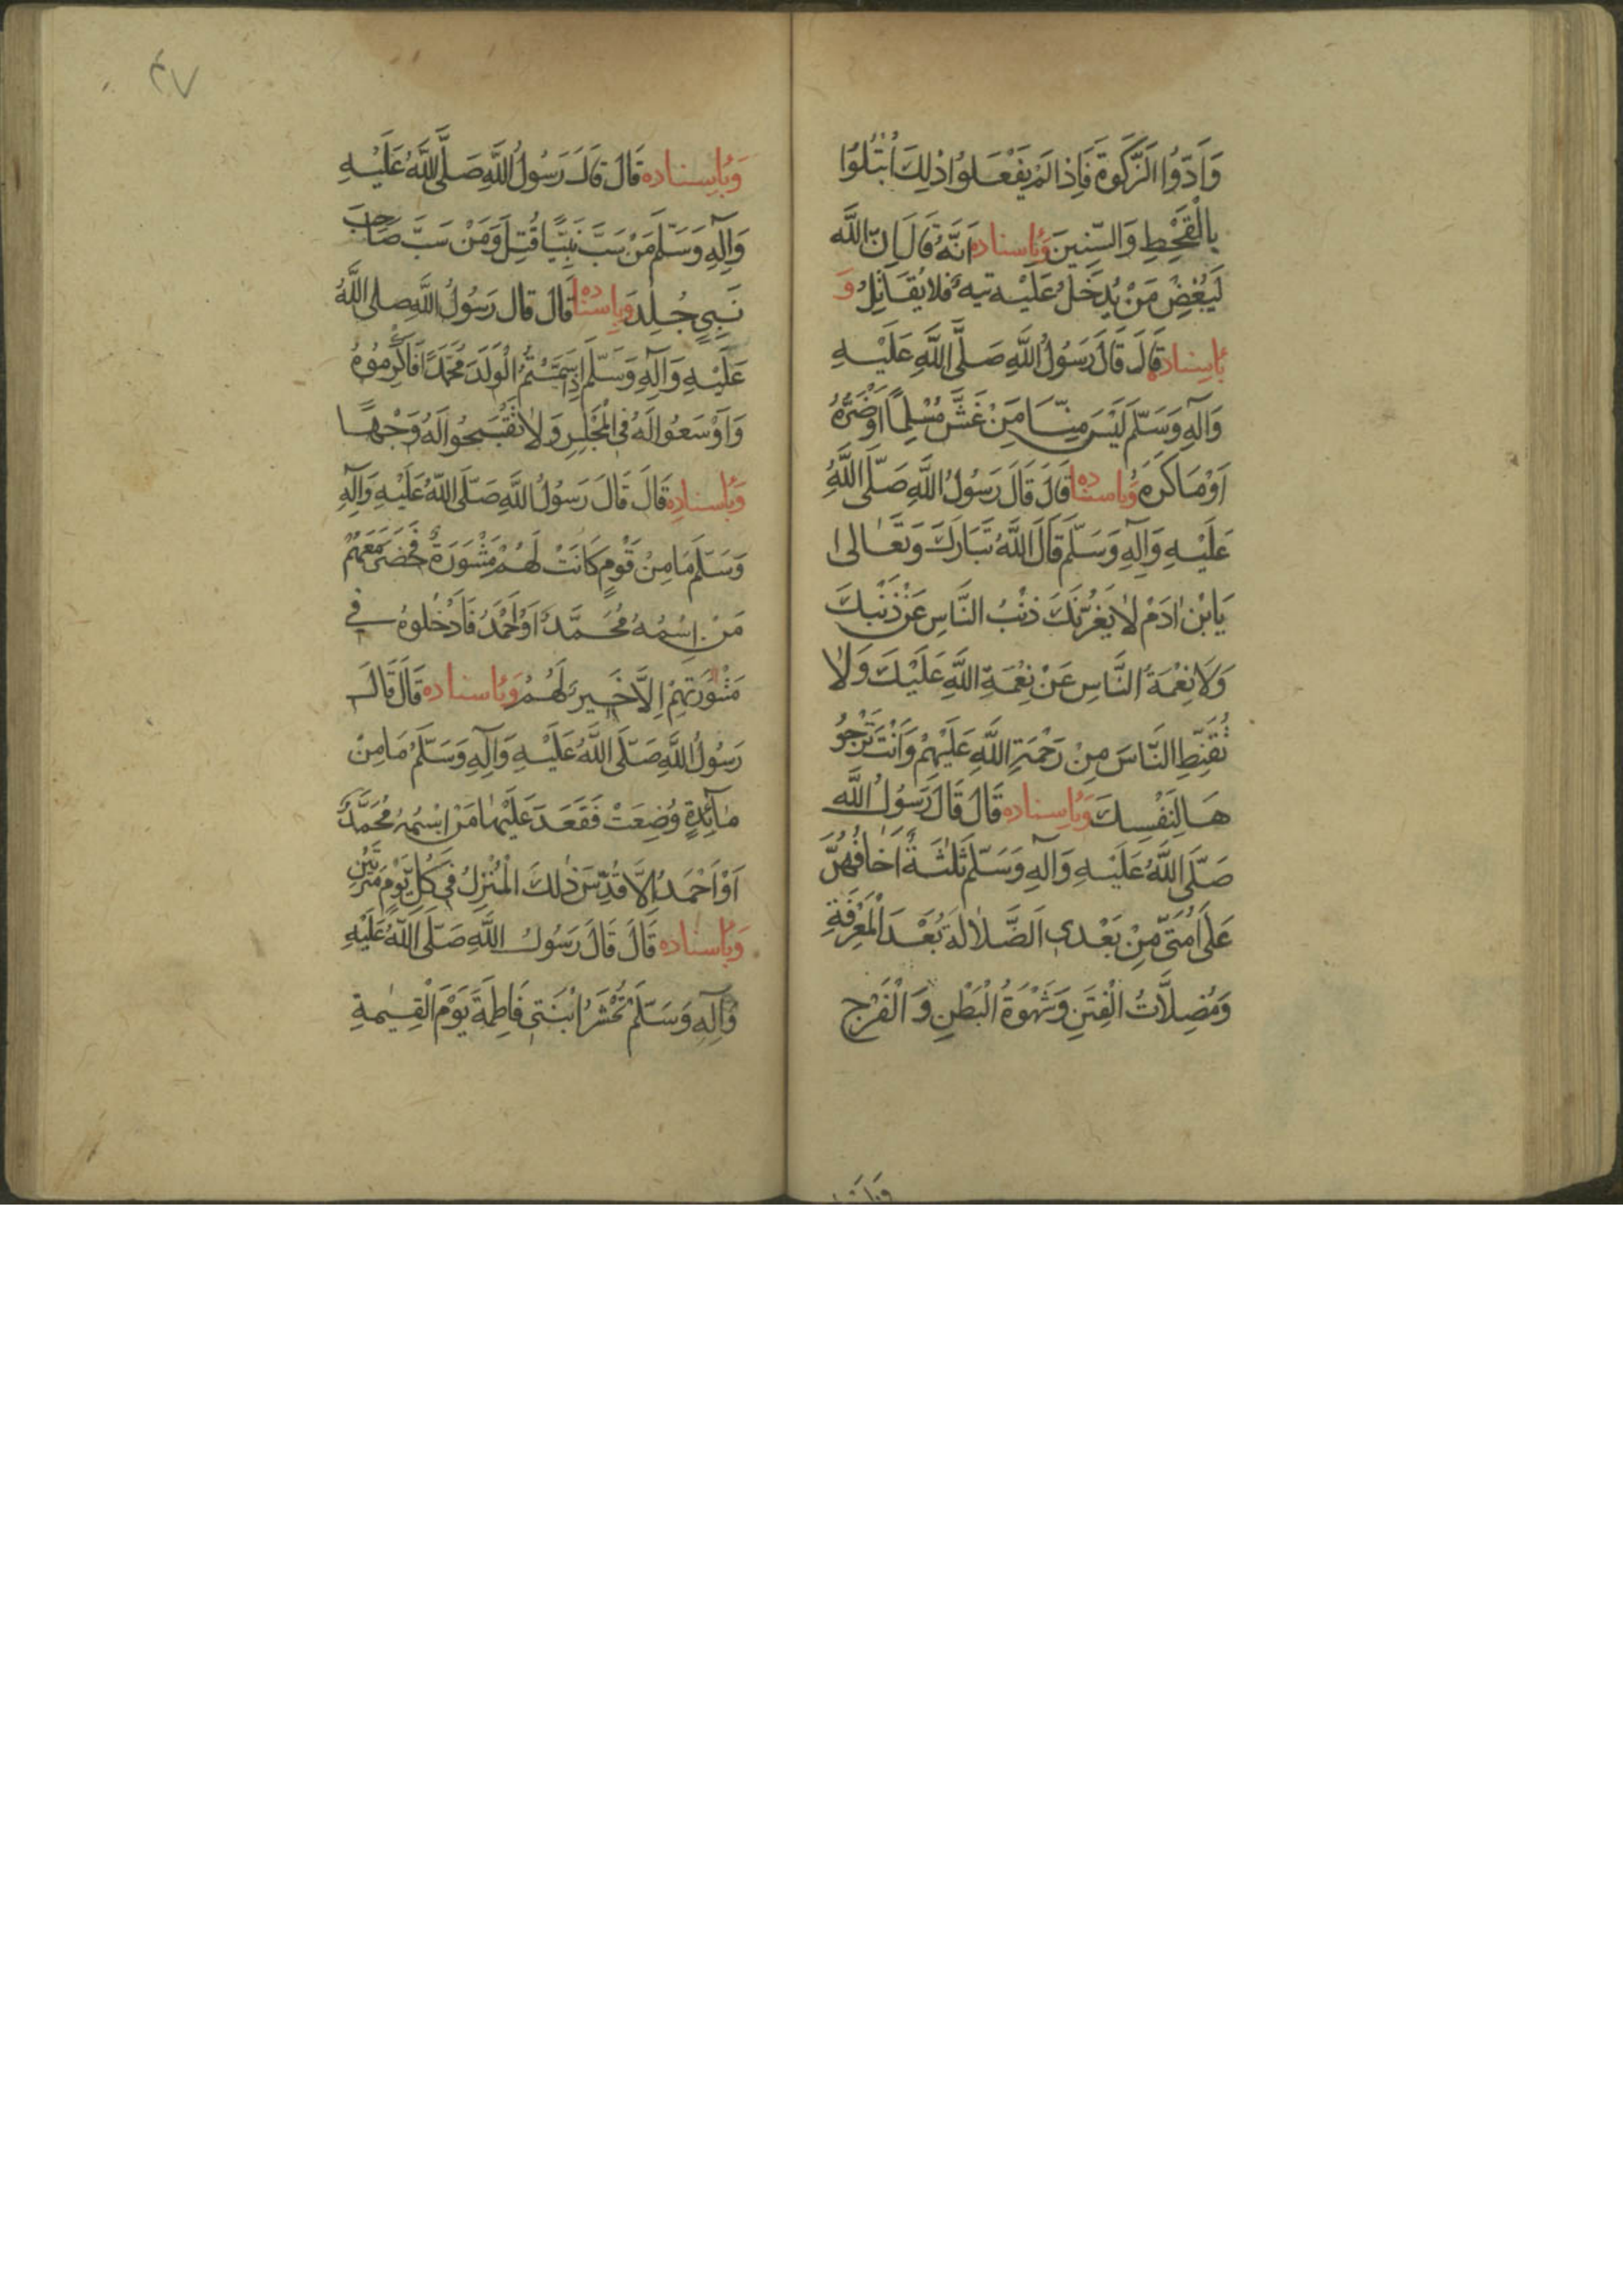 وَاَدَّوُا الزَّكٰوةَ فَاِذَا لَمْ يَفْعَلُوا ذٰلِكَ ابْتُلُوْا
بِالْقَحْطِ وَالسِّنِينَ وَبِاسناده اَنَّهُ قَالَ اِنَّ اللَّهَ
لَيُبْغِضُ مَنْ يُدْخَلُ عَلَيْهِ بيته فلا يُقَاتِلُ وَ
بِاسناده قَالَ قَالَ رَسُوْلُ اللَّهِ صَلَّى اللَّهِ عَلَيْهِ
وَآلِهِ وَسَلَّمَ لَيْسَ مِنَّا مَنْ غَشَّ مُسْلِماً اَوْ ضَرَّهُ
اَوْ مَاكَرَهُ وَباسناده قَالَ قَالَ رَسُوْلُ اللَّهِ صَلَّى اللَّهُ
عَلَيْهِ وَآلِهِ وَسَلَّمَ قَالَ اللَّهُ تَبَارَكَ وَتَعَالى
يَابْنَ اٰدَمْ لَا يَغُرَّنَّكَ ذَنْبُ النَّاسِ عَنْ ذَنْبِكَ
وَلَا نِعْمَةُ النَّاسِ عَنْ نِعْمَةِ اللَّهِ عَلَيْكَ وَلَا
تُقَنِّطِ النَّاسَ مِنْ رَحْمَةِ اللَّهِ عَلَيْهِمْ وَاَنْتَ تَرْجُو
هَا لِنَفْسِكَ وَبِاسناده قَالَ قَالَ رَسُوْلُ اللَّه
صَلَّى اللَّهُ عَلَيْهِ وَآلِهِ وَسَلَّمَ ثَلٰثَةٌ اَخَافُهُنَّ
عَلَى اُمَّتِى مِنْ بَعْدِى اَلضَّلَالَة بَعْدَ الْمَعْرِفَةِ
وَمُضِلَّاتُ الْفِتَنِ وَشَهْوَةُ الْبَطْنِ وَ الْفَرْجِ
٤٧
وَبِاسناده قَالَ قَالَ رَسُوْلُ اللَّهِ صَلَّى اللَّهُ عَلَيْهِ
وَآلِهِ وَسَلَّمَ مَنْ سَبَّ نَبِيًّا قُتِلَ وَمَنْ سَبَّ صَاحِبَ
نَبِىٍّ جُلِدَ وَباسناده قَالَ قال رَسُوْلُ اللَّهِ صلى اللَّهُ
عَلَيْهِ وَآلِهِ وَسَلَّمَ اِذَا سَمَّيْتُمُ الْوَلَدَ مُحَمَّدًا فَاَكْرِمُوْهُ
وَاَوْسَعُوا لَهُ فِى الْمَجْلِسِ وَلَا تُقَبِّحُوا لَهُ وَجْهًا
وَبِاسنادِه قَالَ قَالَ رَسُوْلُ اللَّهِ صَلَّى اللَّهُ عَلَيْهِ وَآلِهِ
وَسَلَّمَ مَا مِنْ قَوْمٍ كَانَتْ لَهُمْ مَشْوَرَةٌ فَحَضَرَ مَعَهُمْ
مَنْ اِسْمُهُ مُحَمَّدٌ اَوْ اَحْمَدُ فَاَدْخَلُوهُ في
مَشْوَرَتِهِمْ اِلَّا خَيْرٌ لَهُمْ وَبِاسناده قَالَ قَالَ
رَسُوْلُ اللَّهِ صَلَّى اللَّهُ عَلَيْهِ وَآلِهِ وَسَلَّمَ مَا مِنْ
مَائِدَةٍ وُضِعَتْ فَقَعَدَ عَلَيْهَا مَنْ اسْمُهُ مُحَمَّدٌ
اَوْ اَحْمَدُ اِلَّا قُدِّسَ ذٰلِكَ الْمَنْزِلُ فِي كُلِّ يَوْمٍ مَرَّتَيْنِ
وَبِاسناده قَالَ قَالَ رَسُوْلُ اللَّهِ صَلَّى اللَّهُ عَلَيْهِ
وَآلِهِ وَسَلَّمَ تُحْشَرُ ابْنَتِى فَاطِمَةَ يَوْمَ الْقِيٰمَةِ